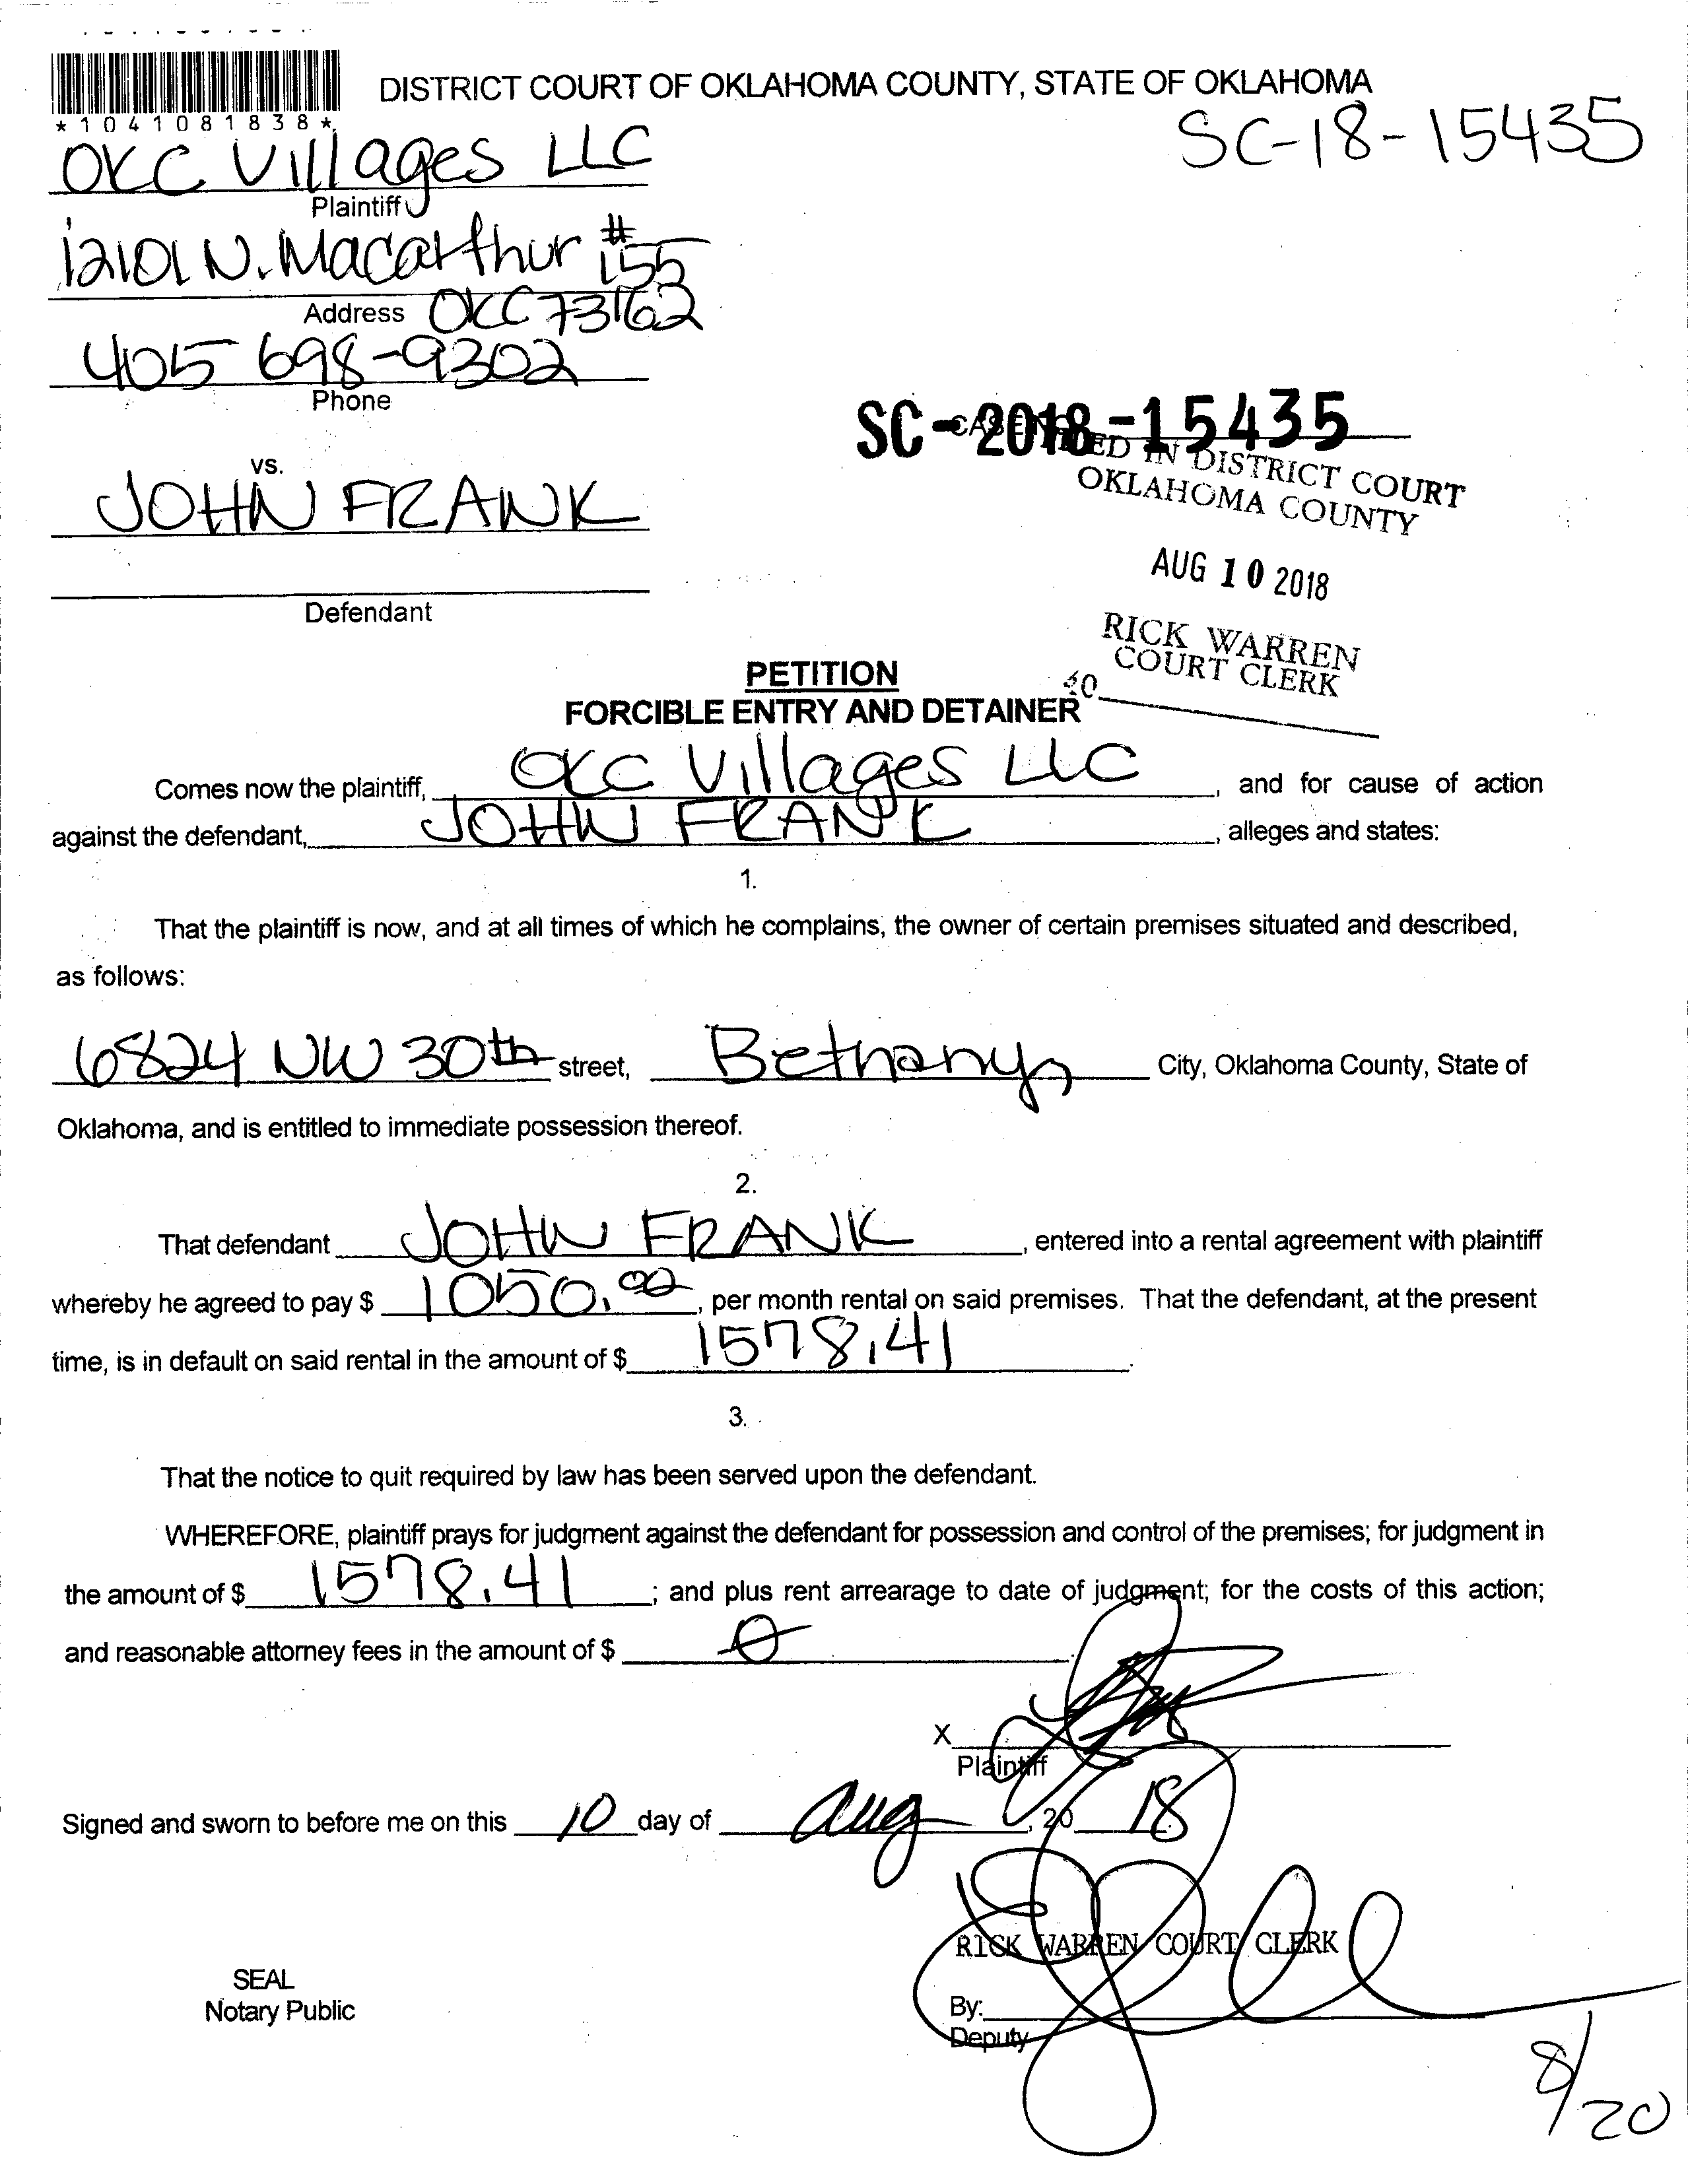 DISTRICT COURT OF OKLAHOMA COUNTY, STATE OF OKLAHOMA
*1041081838*
SC-18-15435
OKC Villages LLC
Plaintiff
12101 N. Macarthur #155
Address OKC 73162
405 698-9302
Phone
SC-2018-15435
FILED IN DISTRICT COURT
OKLAHOMA COUNTY
vs.
JOHN FRANK
AUG 10 2018
Defendant
RICK WARREN
COURT CLERK
40
PETITION
FORCIBLE ENTRY AND DETAINER
Comes now the plaintiff, OKC Villages LLC, and for cause of action
against the defendant, JOHN FRANK, alleges and states:
1.
That the plaintiff is now, and at all times of which he complains, the owner of certain premises situated and described,
as follows:
6824 NW 30th street, Bethany, City, Oklahoma County, State of
Oklahoma, and is entitled to immediate possession thereof.
2.
That defendant JOHN FRANK, entered into a rental agreement with plaintiff
whereby he agreed to pay $ 1050.00, per month rental on said premises. That the defendant, at the present
time, is in default on said rental in the amount of $ 1578.41.
3.
That the notice to quit required by law has been served upon the defendant.
WHEREFORE, plaintiff prays for judgment against the defendant for possession and control of the premises; for judgment in
the amount of $ 1578.41; and plus rent arrearage to date of judgment; for the costs of this action;
and reasonable attorney fees in the amount of $ 0.
X
Plaintiff
Signed and sworn to before me on this 10 day of Aug, 20 18.
RICK WARREN COURT CLERK
SEAL
Notary Public
By:
Deputy
8/20